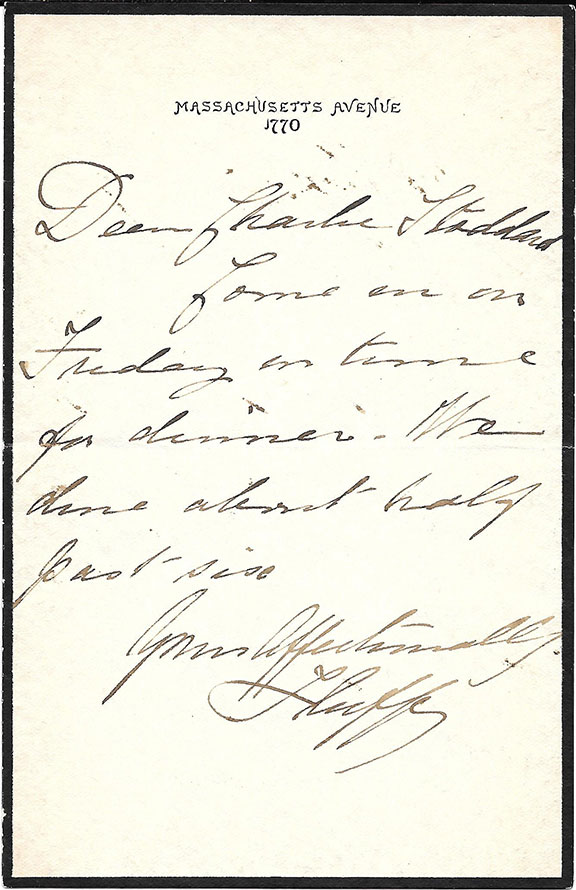 MASSACHUSETTS AVENUE
1770
Dear Charlie Stoddard
Come on on
Friday in time
for dinner. We
dine about half
past six
Yours Affectionally